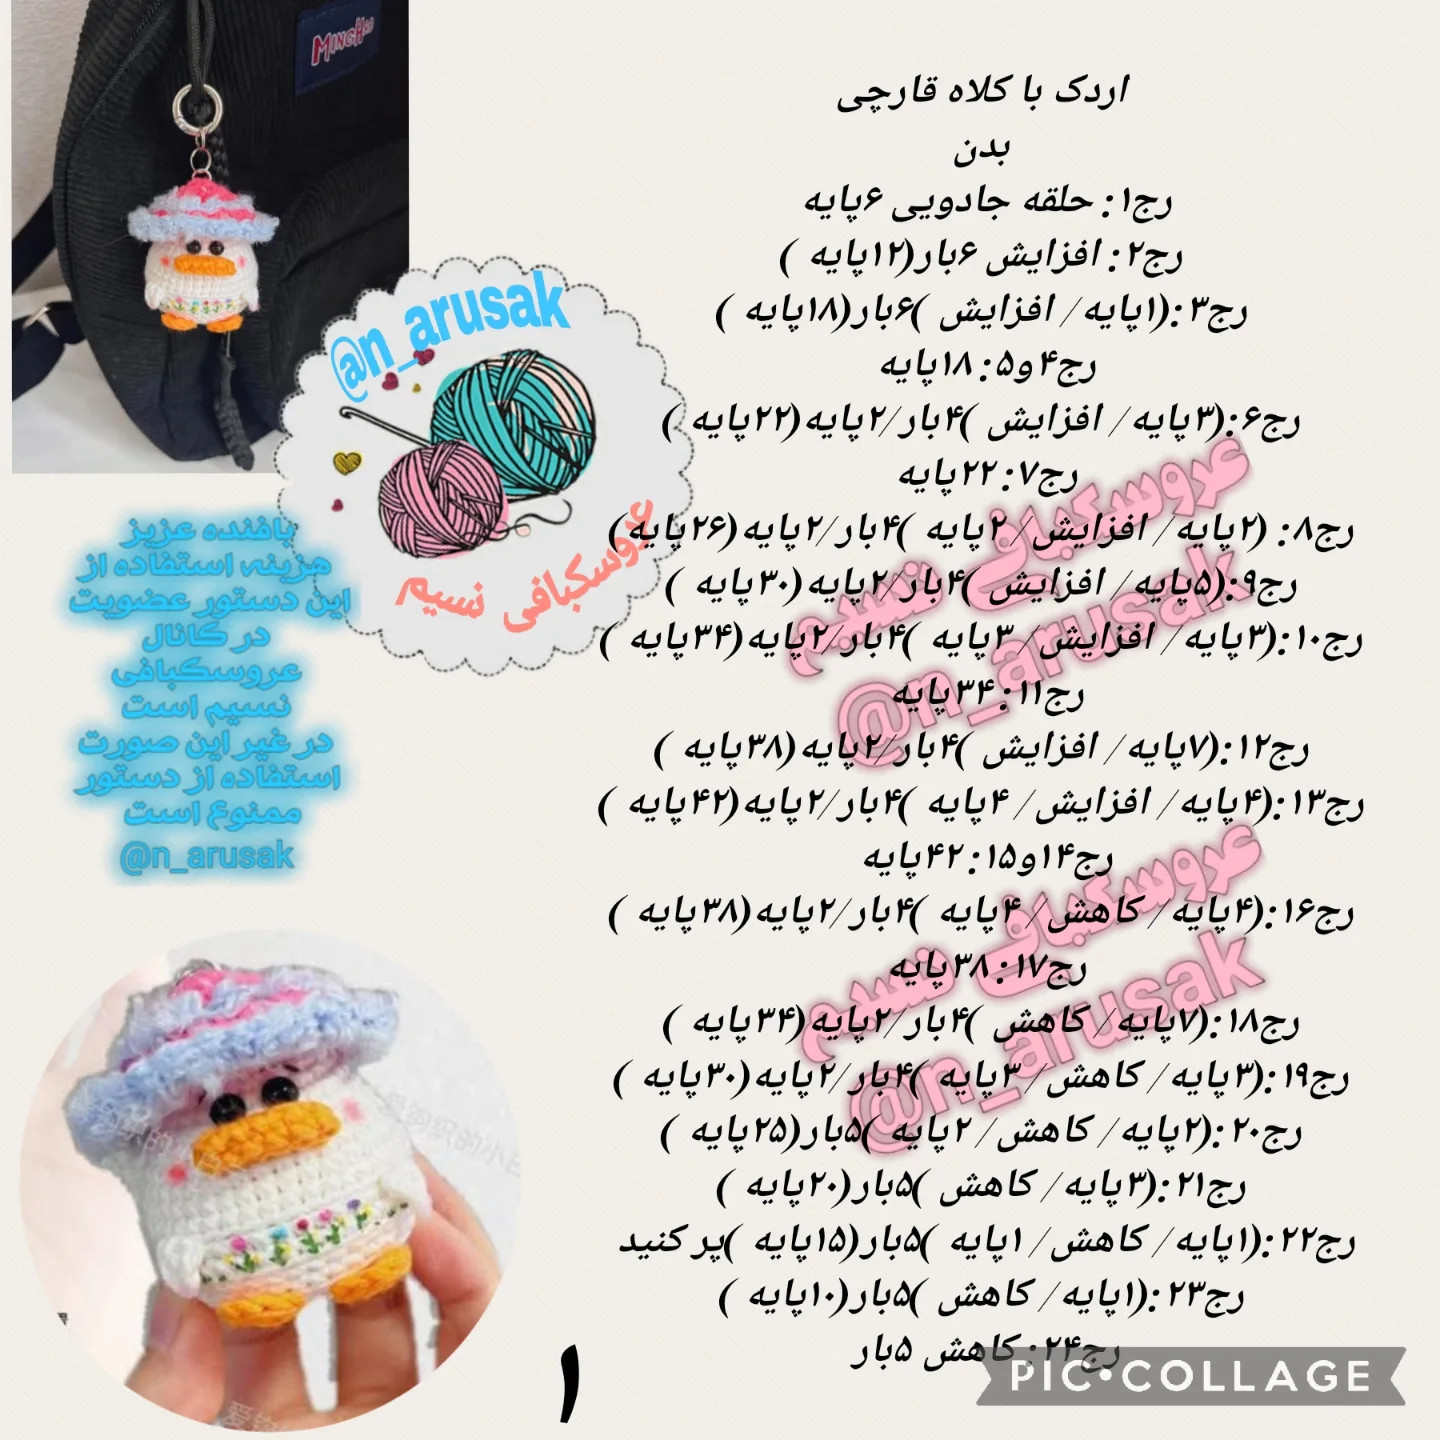 MINGHAO
اردک با کلاه قارچی
بدن
رج۱: حلقه جادویی ۶پایه
رج۲: افزایش ۶بار(۱۲پایه )
رج۳:(۱پایه/ افزایش )۶بار(۱۸پایه )
رج۴و۵: ۱۸پایه
رج۶:(۳پایه/ افزایش )۴بار/۲پایه(۲۲پایه )
رج۷: ۲۲پایه
رج۸: (۲پایه/ افزایش/ ۲پایه )۴بار/۲پایه(۲۶پایه )
رج۹:(۵پایه/ افزایش )۴بار/۲پایه(۳۰پایه )
رج۱۰:(۳پایه/ افزایش/ ۳پایه )۴بار/۲پایه(۳۴پایه )
رج۱۱: ۳۴پایه
رج۱۲:(۷پایه/ افزایش )۴بار/۲پایه(۳۸پایه )
رج۱۳:(۴پایه/ افزایش/ ۴پایه )۴بار/۲پایه(۴۲پایه )
رج۱۴و۱۵: ۴۲پایه
رج۱۶:(۴پایه/ کاهش/ ۴پایه )۴بار/۲پایه(۳۸پایه )
رج۱۷: ۳۸پایه
رج۱۸:(۷پایه/ کاهش )۴بار/۲پایه(۳۴پایه )
رج۱۹:(۳پایه/ کاهش/ ۳پایه )۴بار/۲پایه(۳۰پایه )
رج۲۰:(۲پایه/ کاهش/ ۲پایه )۵بار(۲۵پایه )
رج۲۱:(۳پایه/ کاهش )۵بار(۲۰پایه )
رج۲۲:(۱پایه/ کاهش/ ۱پایه )۵بار(۱۵پایه )پر کنید
رج۲۳:(۱پایه/ کاهش )۵بار(۱۰پایه )
رج۲۴: کاهش ۵بار
@n_arusak
عروسکبافی نسیم
عروسکبافی نسیم
@n_arusak
عروسکبافی نسیم
@n_arusak
بافنده عزیز
هزینه استفاده از
این دستور عضویت
در کانال
عروسکبافی
نسیم است
در غیر این صورت
استفاده از دستور
ممنوع است
@n_arusak
۱
PIC•COLLAGE